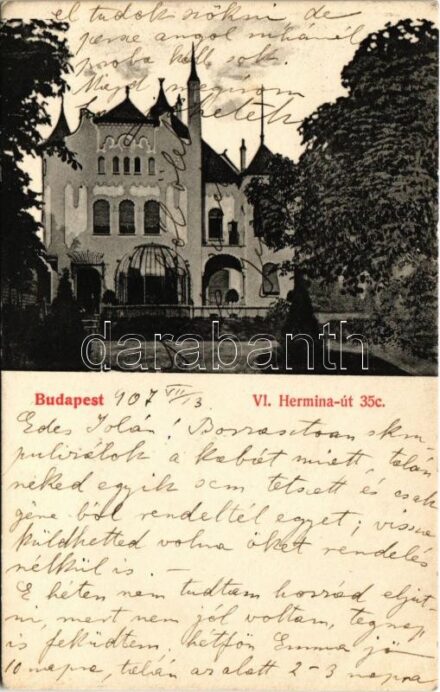 el tudok szökni, de
persze angol ruhánál
próba kell sok.
Majd megirom
darabanth
Budapest 907 VII/13 VI. Hermina-út 35c.
Edes Jolán! Borzasztoan skru-
pulizálok a kabát miatt, talán
néked egyik sem tetszett és csak
gêne ból rendeltél egyet; vissza
küldhetted volna őket rendelés
nélkül is —
E héten nem tudtam hozzád eljut-
ni, mert nem jól voltam, tegnap
is feküdtem, hétfőn Emma jő
10 napra, talán az alatt 2-3 napra